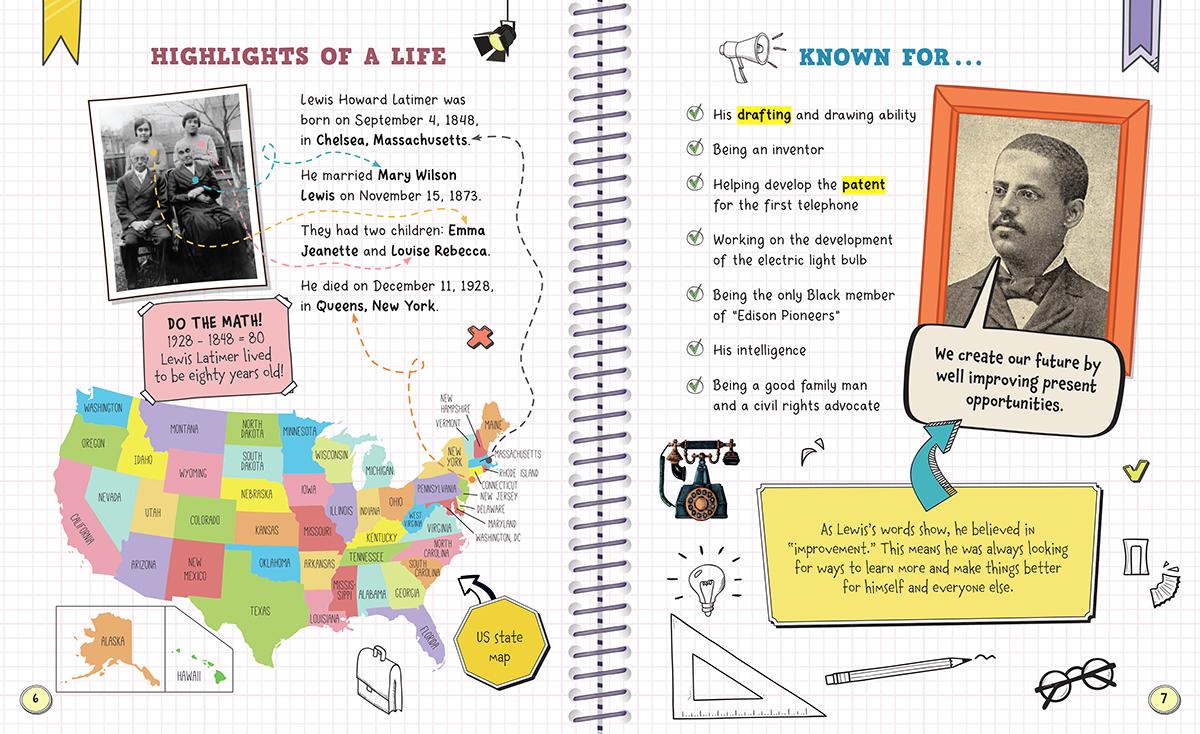 HIGHLIGHTS OF A LIFE
Lewis Howard Latimer was
born on September 4, 1848,
in Chelsea, Massachusetts.
He married Mary Wilson
Lewis on November 15, 1873.
They had two children: Emma
Jeanette and Louise Rebecca.
He died on December 11, 1928,
in Queens, New York.
DO THE MATH!
1928 – 1848 = 80
Lewis Latimer lived
to be eighty years old!
WASHINGTON
OREGON
CALIFORNIA
IDAHO
NEVADA
MONTANA
WYOMING
UTAH
ARIZONA
COLORADO
NEW
MEXICO
NORTH
DAKOTA
SOUTH
DAKOTA
NEBRASKA
KANSAS
OKLAHOMA
TEXAS
MINNESOTA
IOWA
MISSOURI
ARKANSAS
LOUISIANA
WISCONSIN
ILLINOIS
MICHIGAN
INDIANA
OHIO
KENTUCKY
TENNESSEE
MISSIS-
SIPPI
ALABAMA
GEORGIA
FLORIDA
SOUTH
CAROLINA
NORTH
CAROLINA
VIRGINIA
WEST
VIRGINIA
PENNSYLVANIA
NEW
YORK
VERMONT
NEW
HAMPSHIRE
MAINE
MASSACHUSETTS
RHODE ISLAND
CONNECTICUT
NEW JERSEY
DELAWARE
MARYLAND
WASHINGTON, DC
ALASKA
HAWAII
US state
map
6
KNOWN FOR...
His drafting and drawing ability
Being an inventor
Helping develop the patent
for the first telephone
Working on the development
of the electric light bulb
Being the only Black member
of "Edison Pioneers"
His intelligence
Being a good family man
and a civil rights advocate
We create our future by
well improving present
opportunities.
As Lewis's words show, he believed in
"improvement." This means he was always looking
for ways to learn more and make things better
for himself and everyone else.
7